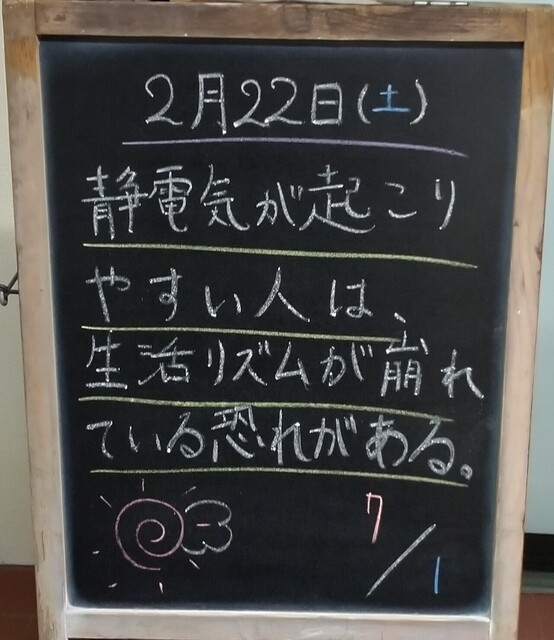 2月22日(土)
静電気が起こり
やすい人は、
生活リズムが崩れ
ている恐れがある。
7/1